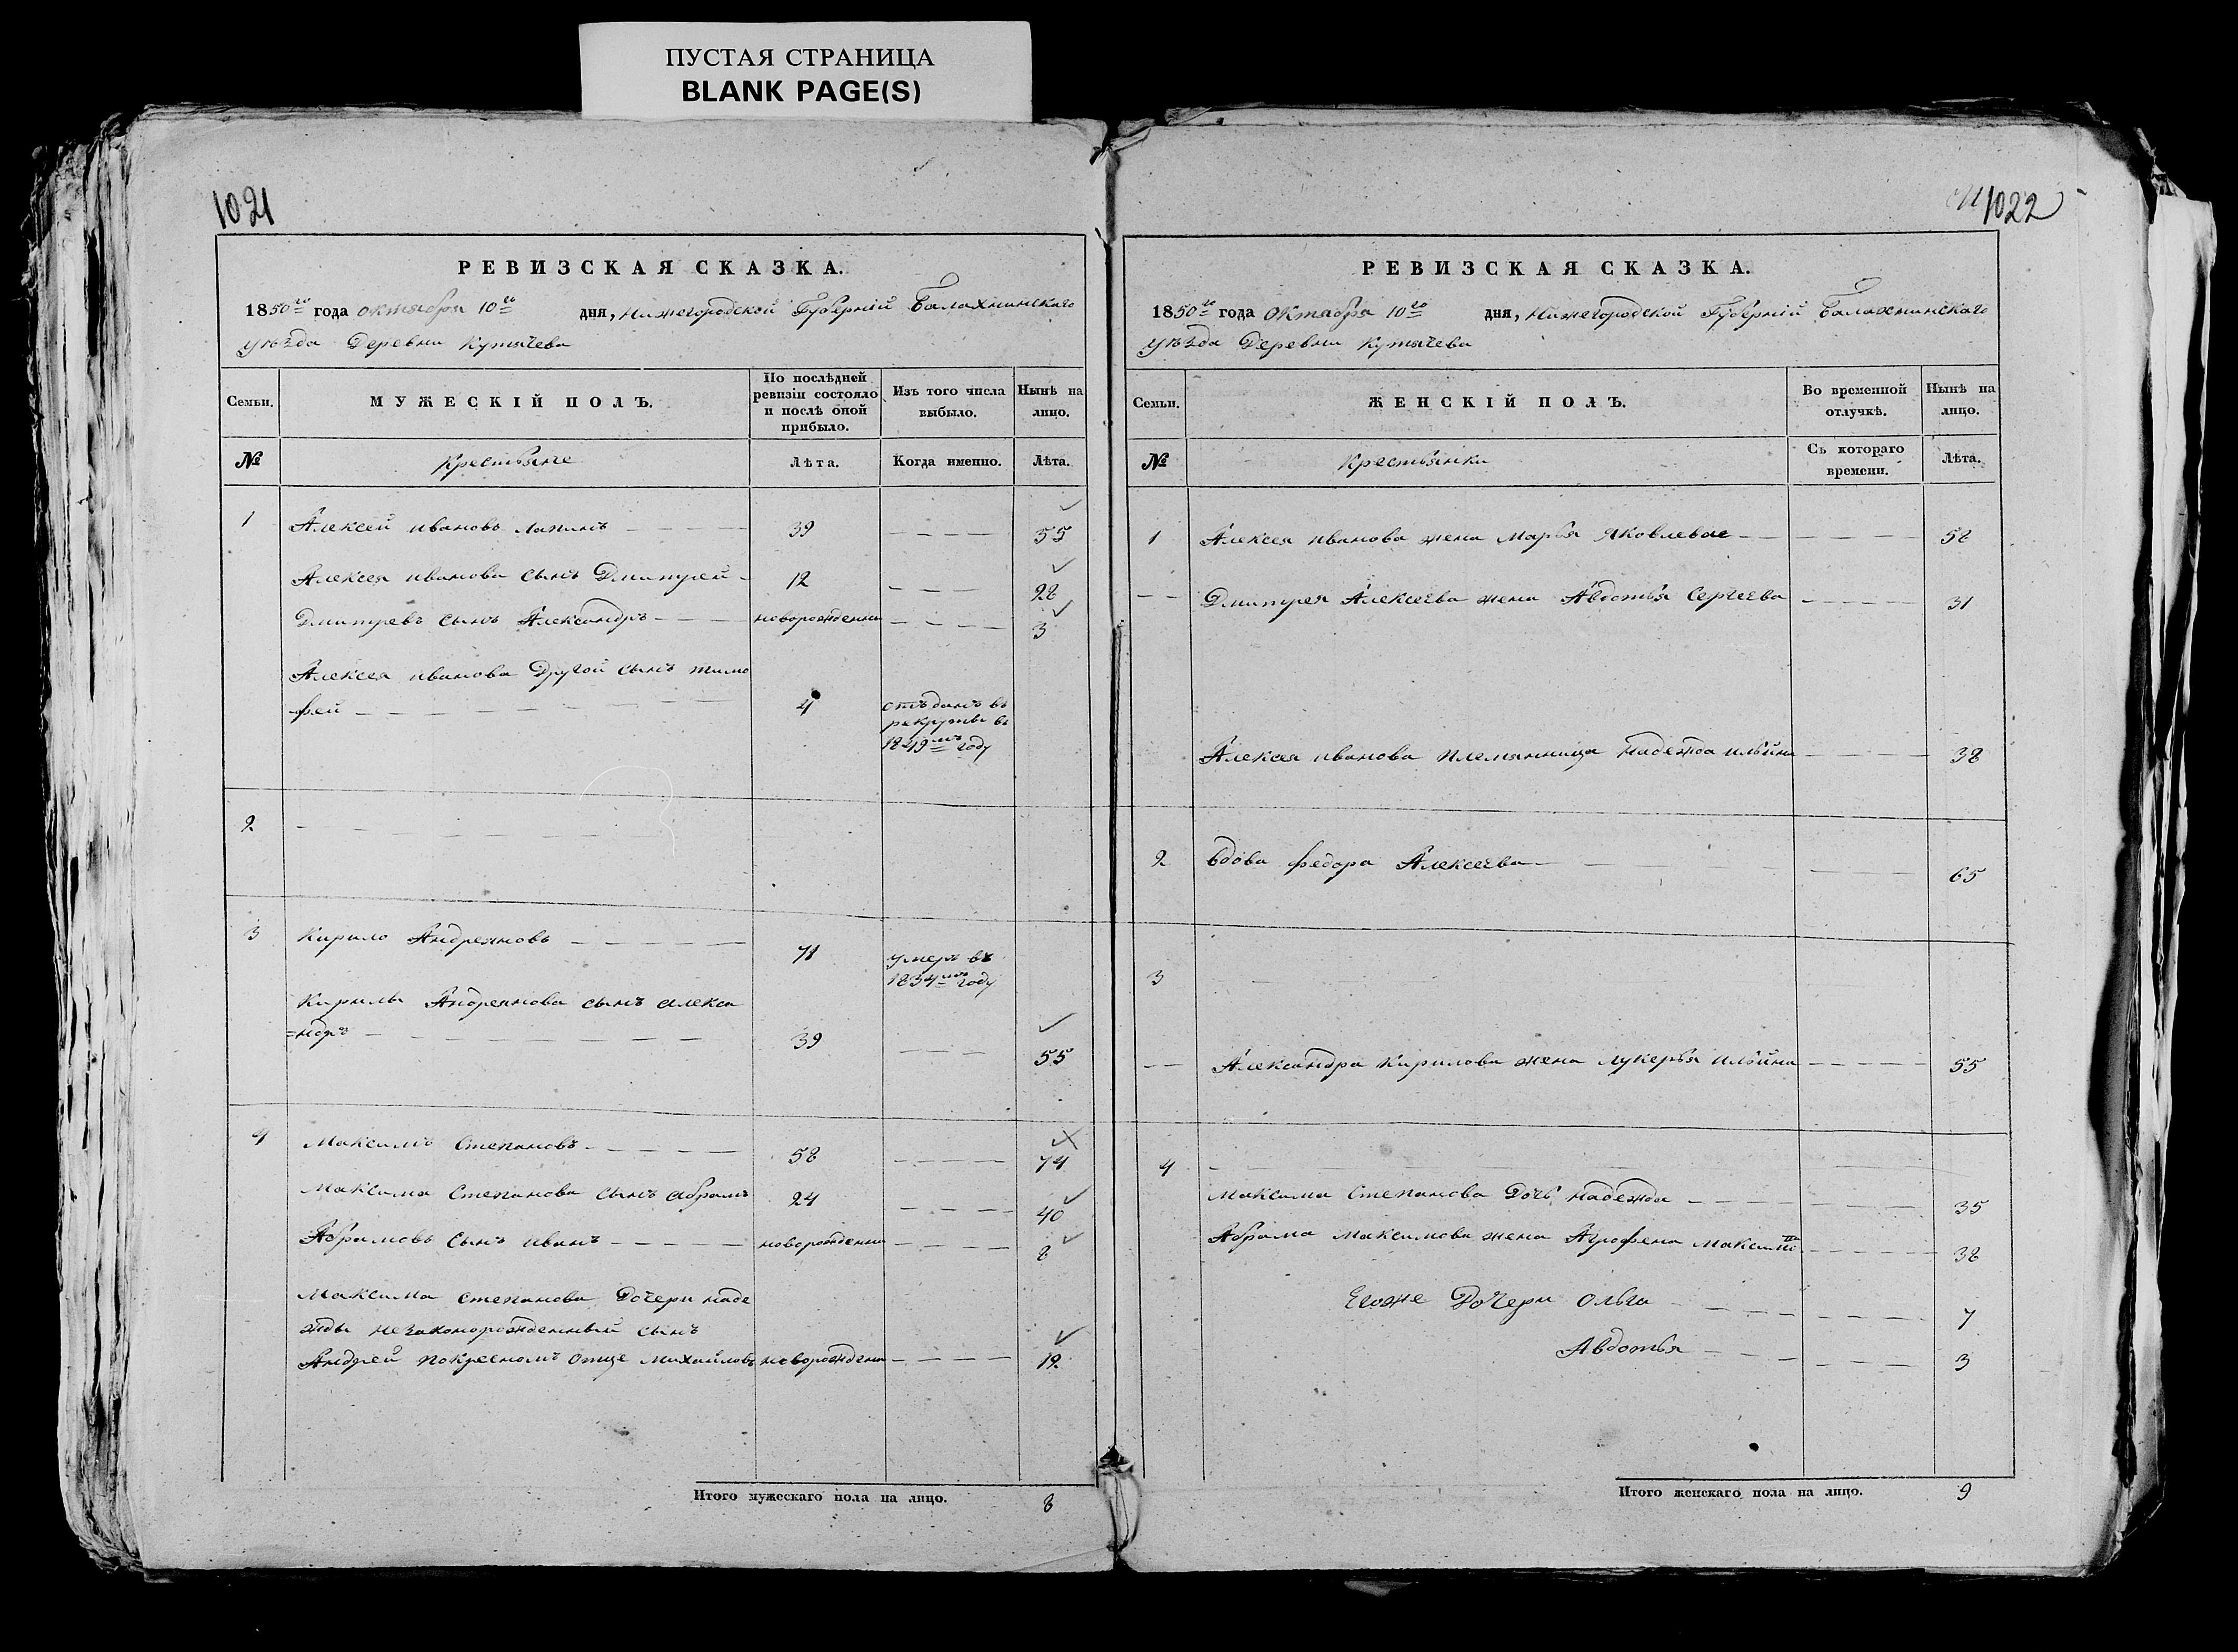 ПУСТАЯ СТРАНИЦА
BLANK PAGE(S)
1021
РЕВИЗСКАЯ СКАЗКА.
1850го года октября 10го дня, Нижегородской Губерній Балахнинскаго
уѣзда Деревни Кутячева
Семьи.
МУЖЕСКІЙ ПОЛЪ.
По послѣдней
ревизіи состояло
и послѣ оной
прибыло.
Изъ того числа
выбыло.
Нынѣ на
лицо.
№ Крестьяне Лѣта. Когда именно. Лѣта.
1 Алексей ивановъ лапинъ 39 55
Алексея иванова сынъ Дмитрей 12 28
Дмитревъ сынъ Александръ новорожденны 3
Алексея иванова Другой сынъ тимо
фей 4 отъданъ въ
рекруты въ
1849мъ году
2
3 Кирило Андреяновъ 71 умеръ въ
1834мъ году
Кирилы Андреянова сынъ алекса
=ндръ 39 55
4 Максимъ Степановъ 58 74
Максима Степанова сынъ абрамъ 24 40
Абрамовъ сынъ иванъ новорожденны 8
Максима степанова Дочери наде
жды незаконорожденный сынъ
Андрей покресномъ отце михайловъ новорождены 12
Итого мужескаго пола на лицо. 8
1022
РЕВИЗСКАЯ СКАЗКА.
1850го года октября 10го дня, Нижегородской Губерній Балахнинскаго
уѣзда Деревни Кутячева
Семьи.
ЖЕНСКІЙ ПОЛЪ.
Во временной
отлучкѣ.
Нынѣ на
лицо.
№ Крестьянки
Съ котораго
времени.
Лѣта.
1 Алексея иванова жена Марья Яковлевае 58
Дмитрея Алексеева жена Авдотья Сергеева 31
Алексея иванова племянница надежда ильйна 38
2 вдова федора Алексеева 65
3
Александра Кирилова жена лукерья ильйна 55
4
Максима Степанова Дочь надежда 35
Абрама Максимова жена Агрофена максимо 38
Егоже Дочери Ольга 7
Авдотья 3
Итого женскаго пола на лицо. 9